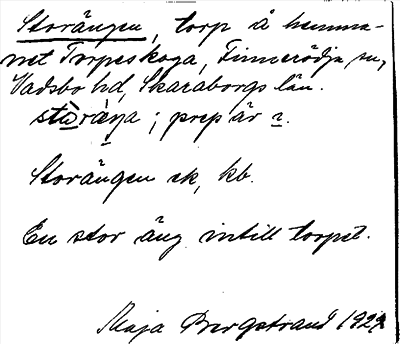 Storängen, torp å hemma-
net Torpeskoga, Finnerödja sn,
Vadsbo hd, Skaraborgs län.
; prep är
Storängen ek, kb.
En stor äng intill torpet.
Maja Bergstrand 1929